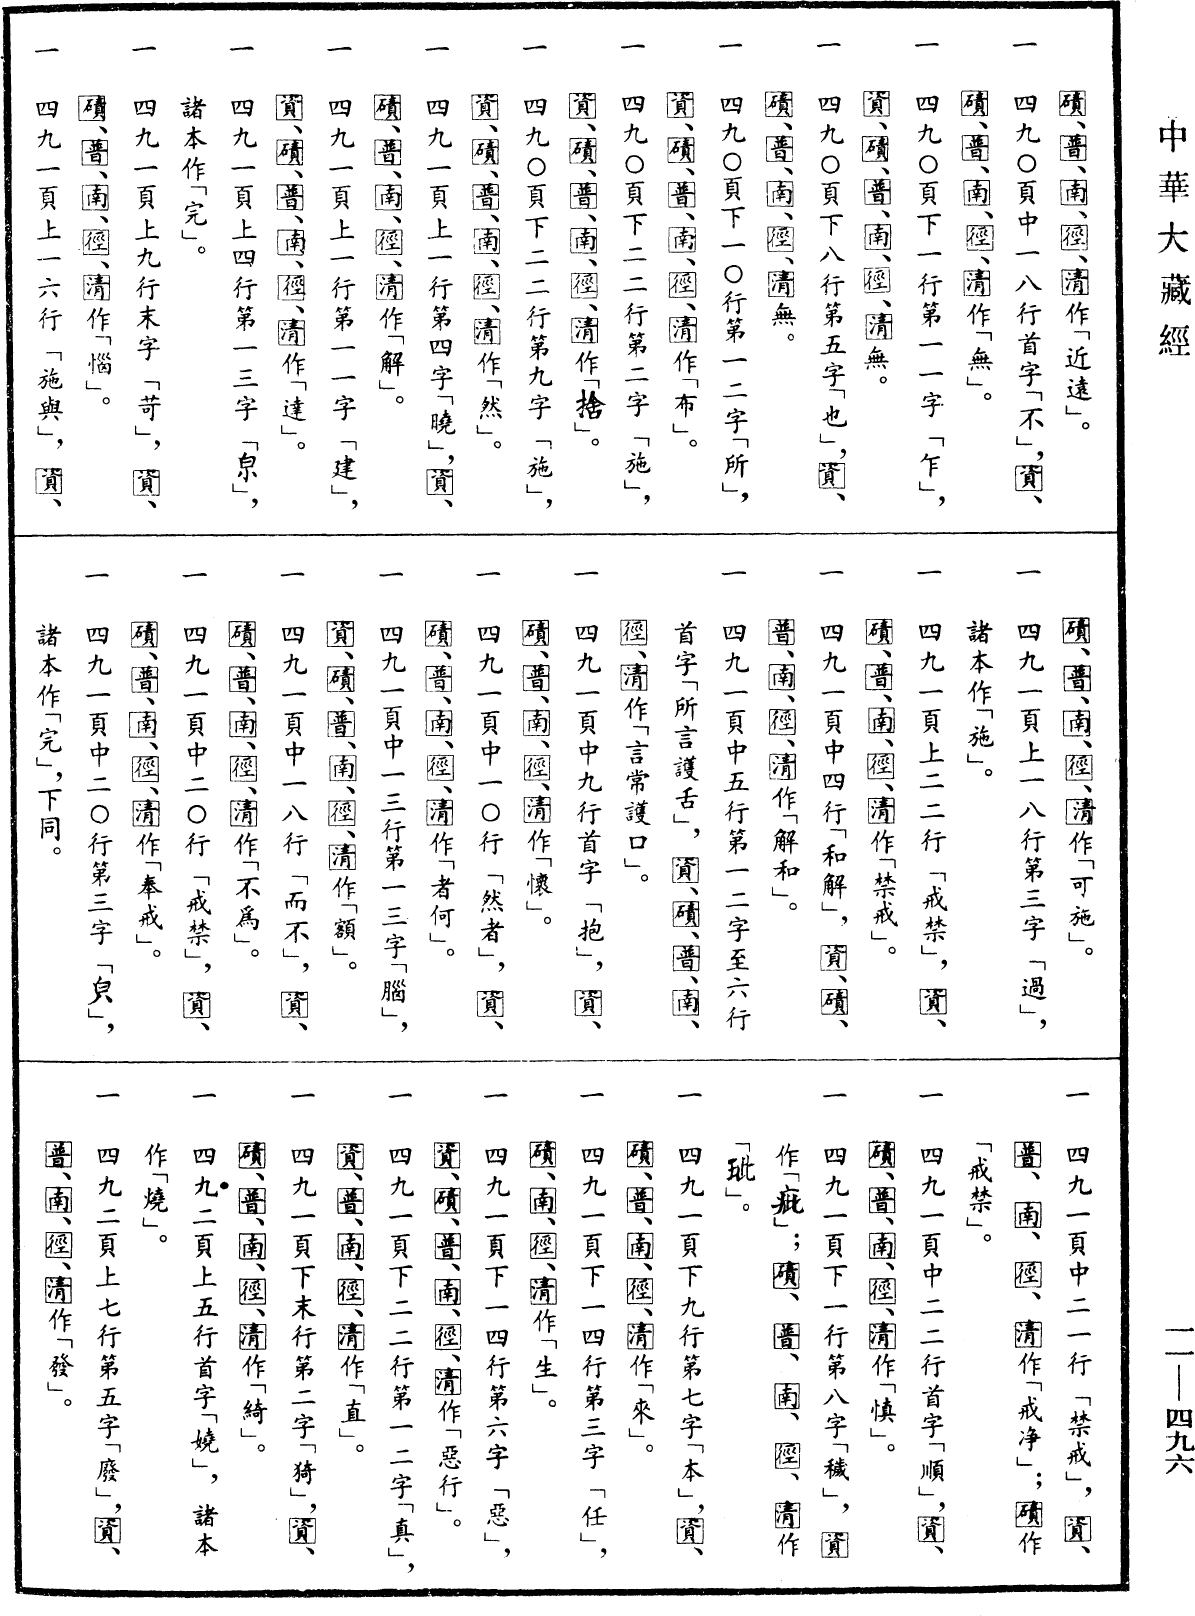 中華大藏經
磧、普、南、徑、清作「近遠」。
一 四九〇頁中一八行首字「不」，資、
磧、普、南、徑、清作「無」。
一 四九〇頁下一行第一一字「乍」，
資、磧、普、南、徑、清無。
一 四九〇頁下八行第五字「也」，資、
磧、普、南、徑、清無。
一 四九〇頁下一〇行第一二字「所」，
資、磧、普、南、徑、清作「布」。
一 四九〇頁下二二行第二字「施」，
資、磧、普、南、徑、清作「捨」。
一 四九〇頁下二二行第九字「施」，
資、磧、普、南、徑、清作「然」。
一 四九一頁上一行第四字「曉」，資、
磧、普、南、徑、清作「解」。
一 四九一頁上一行第一一字「建」，
資、磧、普、南、徑、清作「達」。
一 四九一頁上四行第一三字「㒰」，
諸本作「完」。
一 四九一頁上九行末字「苛」，資、
磧、普、南、徑、清作「惱」。
一 四九一頁上一六行「施與」，資、
磧、普、南、徑、清作「可施」。
一 四九一頁上一八行第三字「過」，
諸本作「施」。
一 四九一頁上二二行「戒禁」，資、
磧、普、南、徑、清作「禁戒」。
一 四九一頁中四行「和解」，資、磧、
普、南、徑、清作「解和」。
一 四九一頁中五行第一二字至六行
首字「所言護舌」，資、磧、普、南、
徑、清作「言常護口」。
一 四九一頁中九行首字「抱」，資、
磧、普、南、徑、清作「懷」。
一 四九一頁中一〇行「然者」，資、
磧、普、南、徑、清作「者何」。
一 四九一頁中一三行第一三字「腦」，
資、磧、普、南、徑、清作「額」。
一 四九一頁中一八行「而不」，資、
磧、普、南、徑、清作「不為」。
一 四九一頁中二〇行「戒禁」，資、
磧、普、南、徑、清作「奉戒」。
一 四九一頁中二〇行第三字「㒰」，
諸本作「完」，下同。
一 四九一頁中二一行「禁戒」，資、
普、南、徑、清作「戒净」；磧作
「戒禁」。
一 四九一頁中二二行首字「順」，資、
磧、普、南、徑、清作「慎」。
一 四九一頁下一行第八字「穢」，資
作「疵」；磧、普、南、徑、清作
「玼」。
一 四九一頁下九行第七字「本」，資、
磧、普、南、徑、清作「來」。
一 四九一頁下一四行第三字「任」，
磧、南、徑、清作「生」。
一 四九一頁下一四行第六字「惡」，
資、磧、普、南、徑、清作「惡行」。
一 四九一頁下二二行第一二字「真」，
資、普、南、徑、清作「直」。
一 四九一頁下末行第二字「猗」，資、
磧、普、南、徑、清作「綺」。
一 四九二頁上五行首字「嬈」，諸本
作「燒」。
一 四九二頁上七行第五字「廢」，資、
普、南、徑、清作「發」。
一一—四九六